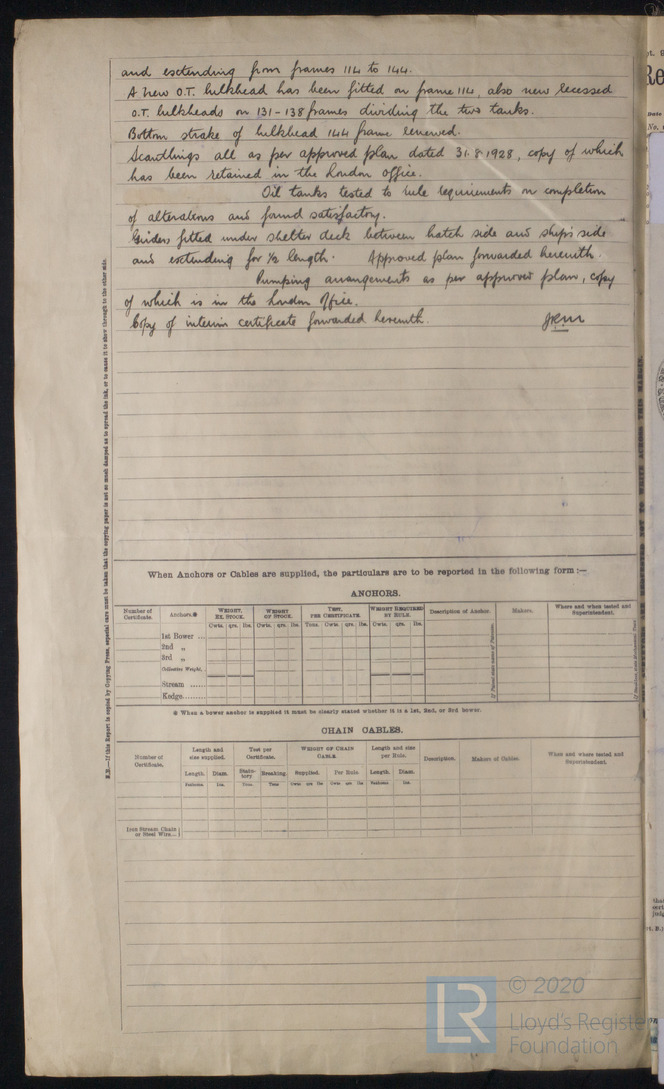 and extending from frames 114 to 144.
A new O.T. bulkhead has been fitted on frame 114, also new recessed
O.T. bulkheads on 131-138 frames dividing the two tanks.
Bottom strake of bulkhead 144 frame renewed.
Scantlings all as per approved plan dated 31.8.1928, copy of which
has been retained in the London office.
Oil tanks tested to rule requirements on completion
of alterations and found satisfactory.
Girders fitted under shelter deck between hatch side and ship's side
and extending for ½ length. Approved plan forwarded herewith.
Pumping arrangements as per approved plan, copy
of which is in the London Office.
Copy of interim certificate forwarded herewith.
N.B.—If this Report is copied by Copying Press, especial care must be taken that the copying paper is not so much damped as to spread the ink, or to cause it to show through to the other side.
When Anchors or Cables are supplied, the particulars are to be reported in the following form :—
ANCHORS.
Number of Certificate. Anchors.* WEIGHT, EX. STOCK. WEIGHT OF STOCK. TEST, PER CERTIFICATE. WEIGHT REQUIRED BY RULE. Description of Anchor. Makers. Where and when tested and Superintendent.
Cwts. qrs. lbs. Cwts. qrs. lbs. Tons. Cwts. qrs. lbs. Cwts. qrs. lbs.
1st Bower ...
2nd „
3rd „
Collective Weight,
Stream ......
Kedge........
* When a bower anchor is supplied it must be clearly stated whether it is a 1st, 2nd, or 3rd bower.
CHAIN CABLES.
Number of Certificate. Length and size supplied. Test per Certificate. WEIGHT OF CHAIN CABLE Length and size per Rule. Description. Makers of Cables. When and where tested and Superintendent.
Length. Diam. Statutory Breaking. Supplied. Per Rule. Length. Diam.
Fathoms Ins. Tons. Tons Cwts qrs lbs Cwts qrs lbs Fathoms Ins.
Iron Stream Chain or Steel Wire...
LR
© 2020
Lloyd's Register
Foundation